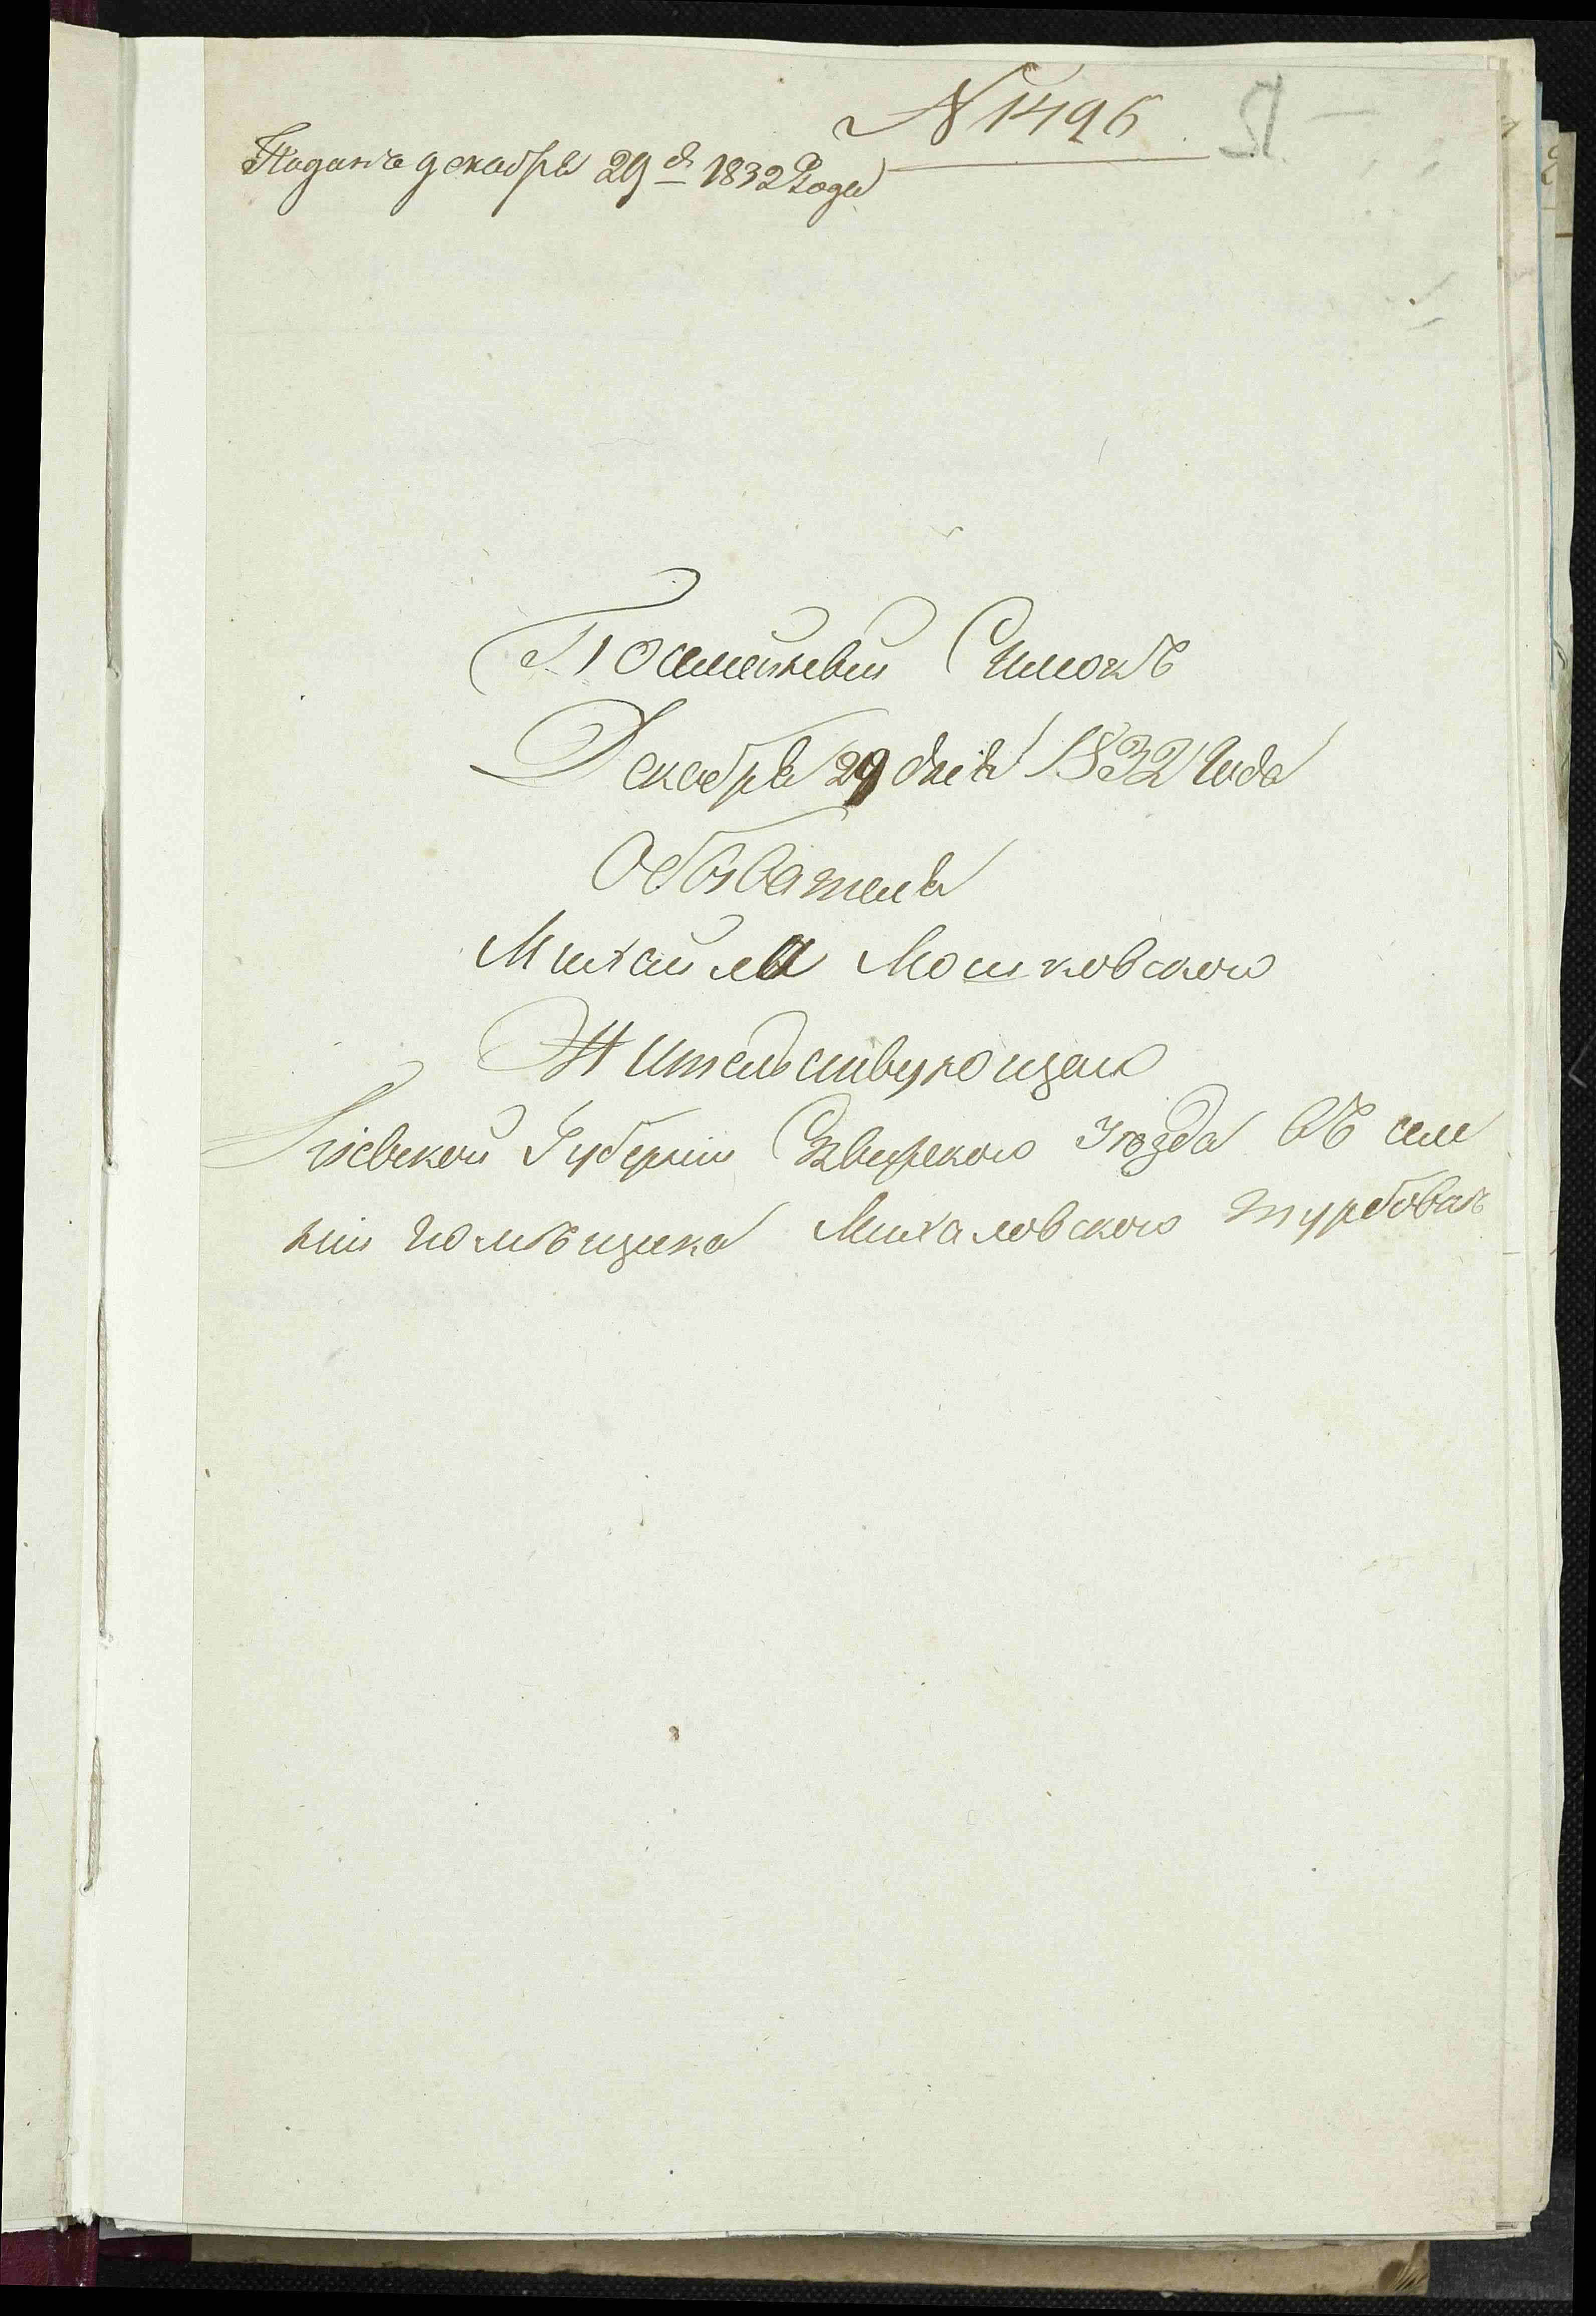 N 1496
Поданъ декабря 29 д 1832 Года
Посемейный Списокъ
Декабря 29 дня 1832 Года
Обывателя
Михайла Мошковского
Жительствующаго
Кіевской Губерніи Сквирского Уѣзда въ селе
ніи помѣщика Михаловского Турбовкѣ